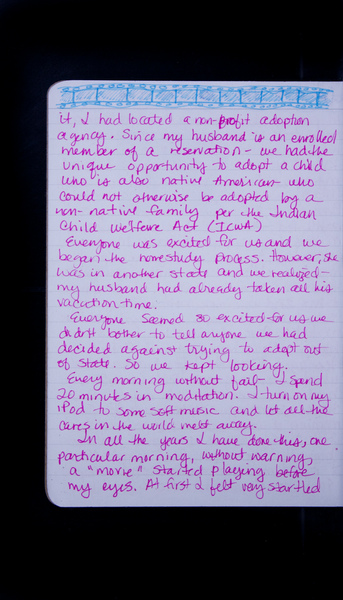 it, I had located a non-profit adoption
agency. Since my husband is an enrolled
member of a reservation - we had the
unique opportunity to adopt a child
who is also native American - who
could not otherwise be adopted by a
non-native family per the Indian
Child Welfare Act (ICWA)
Everyone was excited for us and we
began the homestudy process. However, she
was in another state and we realized -
my husband had already taken all his
vacation time.
Everyone seemed so excited for us we
didn't bother to tell anyone we had
decided against trying to adopt out
of state. So we kept looking.
Every morning without fail - I spend
20 minutes in meditation. I turn on my
iPod to some soft music and let all the
cares in the world melt away.
In all the years I have done this, one
particular morning, without warning,
a "movie" started playing before
my eyes. At first I felt very startled